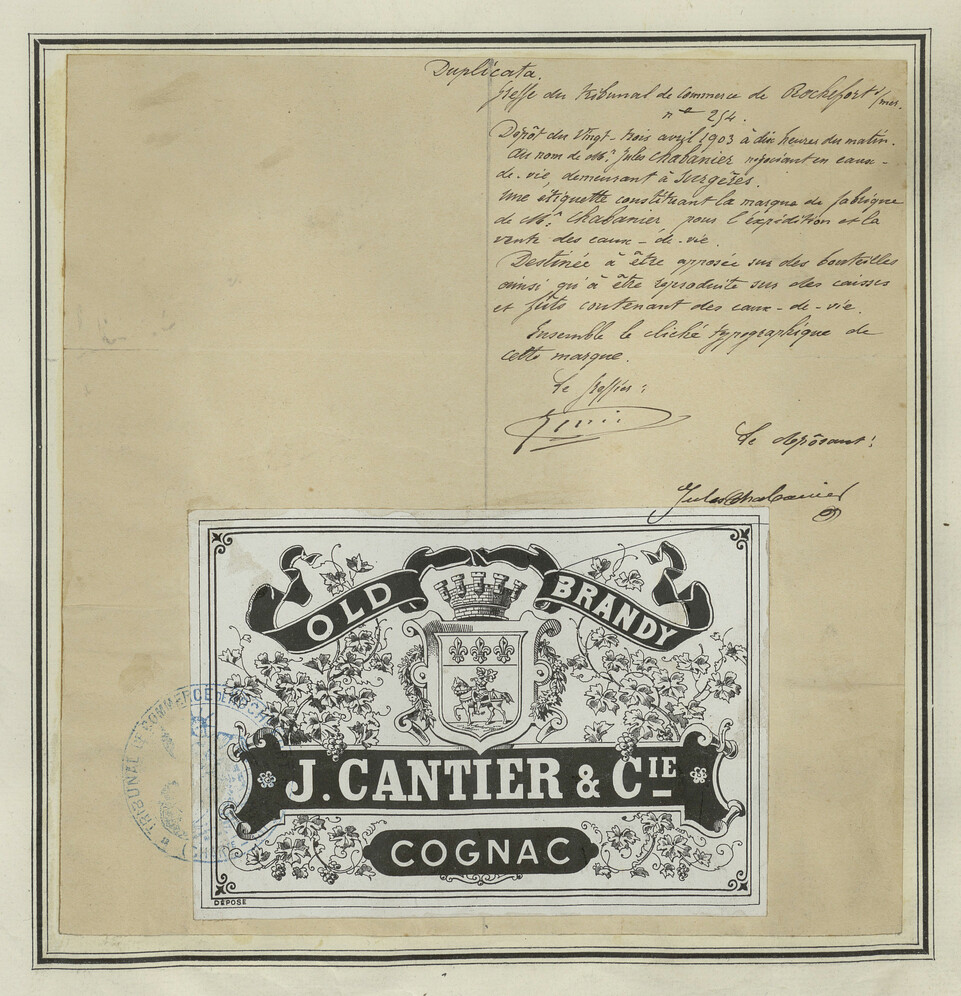 Duplicata.
Greffe du Tribunal de Commerce de Rochefort s/mer.
n° 254.
Dépôt du Vingt-trois avril 1903 à dix heures du matin.
Au nom de Mr. Jules Chabanier négociant en eaux-
de-vie, demeurant à Surgères.
Une étiquette constituant la marque de fabrique
de Mr. Chabanier pour l'expédition et la
vente des eaux-de-vie.
Destinée à être apposée sur des bouteilles
ainsi qu'à être reproduite sur des caisses
et fûts contenant des eaux-de-vie.
Ensemble le cliché typographique de
cette marque.
Le Greffier:
Le déposant:
Jules Chabanier
OLD BRANDY
J. CANTIER & CIE
COGNAC
DÉPOSÉ
TRIBUNAL DE COMMERCE DE ROCH